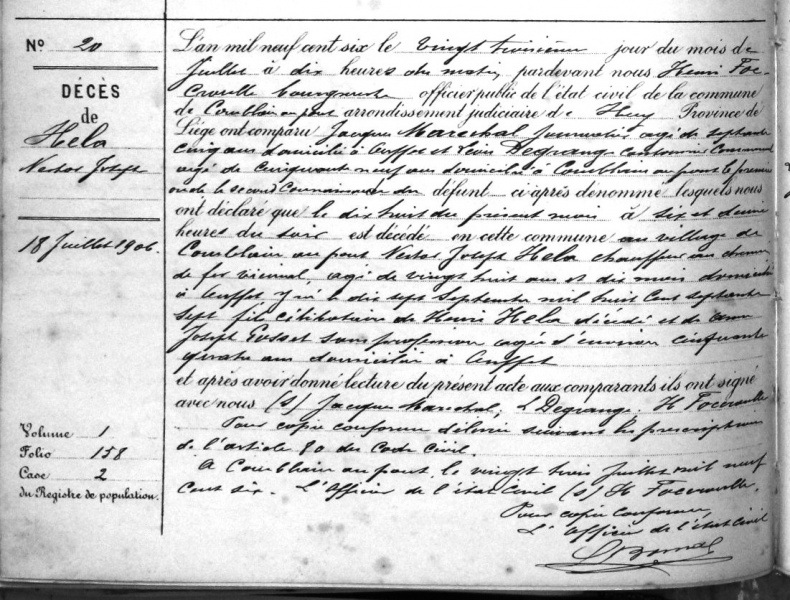 N° 20
DÉCÈS
de
Hela
Nestor Joseph
18 Juillet 1906.
Volume 1
Folio 158
Case 2
du Registre de population.
L'an mil neuf cent six le vingt troisième jour du mois de
Juillet à dix heures du matin, pardevant nous Henri Foc-
croulle bourgmestre officier public de l'état civil de la commune
de Comblain au pont arrondissement judiciaire de Huy Province de
Liége ont comparu Jacques Marechal Journalier agé de septante
cinq ans domicilié à Ouffet et Degrange cantonnier communal
agé de cinquante neuf ans domicilié à Comblain au pont le premier
et le second Connaissance du défunt ci après dénommé lesquels nous
ont déclaré que le dix huit du présent mois à six et demie
heures du soir est décédé en cette commune au village de
Comblain au pont Nestor Joseph Hela chauffeur au chemin
de fer vicinal, agé de vingt huit ans et dix mois domicilié
à Ouffet y né le dix sept Septembre mil huit cent septante
sept fils célibataire de Henri Hela décédé et de
Joseph Gosset sans profession agée d'environ cinquante
quatre ans domiciliée à Ouffet
et après avoir donné lecture du présent acte aux comparants ils ont signé
avec nous (s) Jacques Marechal; L Degrange. H Foccroulle
Pour copie conforme délivrée suivant les prescriptions
de l'article 80 du Code Civil.
A Comblain au pont, le vingt trois Juillet mil neuf
cent six. L'Officier de l'état Civil (s) H Foccroulle.
Pour copie conforme,
L'Officier de l'état Civil